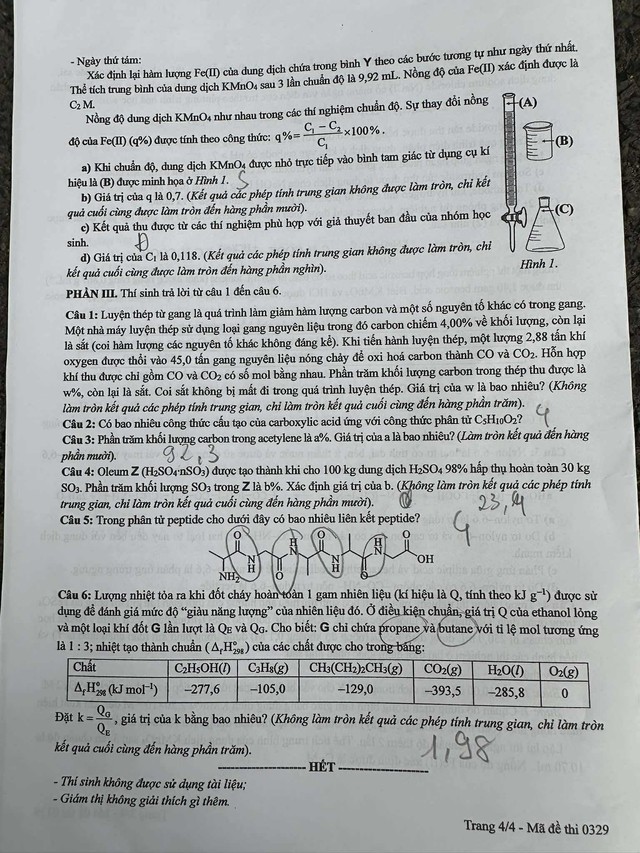 - Ngày thứ tám:
Xác định lại hàm lượng Fe(II) của dung dịch chứa trong bình Y theo các bước tương tự như ngày thứ nhất.
Thể tích trung bình của dung dịch KMnO₄ sau 3 lần chuẩn độ là 9,92 mL. Nồng độ của Fe(II) xác định được là
C₂ M.
Nồng độ dung dịch KMnO₄ như nhau trong các thí nghiệm chuẩn độ. Sự thay đổi nồng
độ của Fe(II) (q%) được tính theo công thức: q% = (C₁ − C₂)/C₁ × 100% .
a) Khi chuẩn độ, dung dịch KMnO₄ được nhỏ trực tiếp vào bình tam giác từ dụng cụ kí
hiệu là (B) được minh họa ở Hình 1. S
b) Giá trị của q là 0,7. (Kết quả các phép tính trung gian không được làm tròn, chỉ kết
quả cuối cùng được làm tròn đến hàng phần mười).
c) Kết quả thu được từ các thí nghiệm phù hợp với giả thuyết ban đầu của nhóm học
sinh. Đ
d) Giá trị của C₁ là 0,118. (Kết quả các phép tính trung gian không được làm tròn, chỉ
kết quả cuối cùng được làm tròn đến hàng phần nghìn).
(A)
(B)
(C)
Hình 1.
PHẦN III. Thí sinh trả lời từ câu 1 đến câu 6.
Câu 1: Luyện thép từ gang là quá trình làm giảm hàm lượng carbon và một số nguyên tố khác có trong gang.
Một nhà máy luyện thép sử dụng loại gang nguyên liệu trong đó carbon chiếm 4,00% về khối lượng, còn lại
là sắt (coi hàm lượng các nguyên tố khác không đáng kể). Khi tiến hành luyện thép, một lượng 2,88 tấn khí
oxygen được thổi vào 45,0 tấn gang nguyên liệu nóng chảy để oxi hoá carbon thành CO và CO₂. Hỗn hợp
khí thu được chỉ gồm CO và CO₂ có số mol bằng nhau. Phần trăm khối lượng carbon trong thép thu được là
w%, còn lại là sắt. Coi sắt không bị mất đi trong quá trình luyện thép. Giá trị của w là bao nhiêu? (Không
làm tròn kết quả các phép tính trung gian, chỉ làm tròn kết quả cuối cùng đến hàng phần trăm).
Câu 2: Có bao nhiêu công thức cấu tạo của carboxylic acid ứng với công thức phân tử C₅H₁₀O₂? 4
Câu 3: Phần trăm khối lượng carbon trong acetylene là a%. Giá trị của a là bao nhiêu? (Làm tròn kết quả đến hàng
phần mười). 92,3
Câu 4: Oleum Z (H₂SO₄·nSO₃) được tạo thành khi cho 100 kg dung dịch H₂SO₄ 98% hấp thụ hoàn toàn 30 kg
SO₃. Phần trăm khối lượng SO₃ trong Z là b%. Xác định giá trị của b. (Không làm tròn kết quả các phép tính
trung gian, chỉ làm tròn kết quả cuối cùng đến hàng phần mười). 23,4
Câu 5: Trong phân tử peptide cho dưới đây có bao nhiêu liên kết peptide? 4
O H N O H N O
NH₂ N H O N H O OH
Câu 6: Lượng nhiệt tỏa ra khi đốt cháy hoàn toàn 1 gam nhiên liệu (kí hiệu là Q, tính theo kJ g⁻¹) được sử
dụng để đánh giá mức độ “giàu năng lượng” của nhiên liệu đó. Ở điều kiện chuẩn, giá trị Q của ethanol lỏng
và một loại khí đốt G lần lượt là Q_E và Q_G. Cho biết: G chỉ chứa propane và butane với tỉ lệ mol tương ứng
là 1 : 3; nhiệt tạo thành chuẩn (Δ_fH°₂₉₈) của các chất được cho trong bảng:
Chất C₂H₅OH(l) C₃H₈(g) CH₃(CH₂)₂CH₃(g) CO₂(g) H₂O(l) O₂(g)
Δ_fH°₂₉₈ (kJ mol⁻¹) −277,6 −105,0 −129,0 −393,5 −285,8 0
Đặt k = Q_G/Q_E, giá trị của k bằng bao nhiêu? (Không làm tròn kết quả các phép tính trung gian, chỉ làm tròn
kết quả cuối cùng đến hàng phần trăm). 1,98
HẾT
- Thí sinh không được sử dụng tài liệu;
- Giám thị không giải thích gì thêm.
Trang 4/4 - Mã đề thi 0329